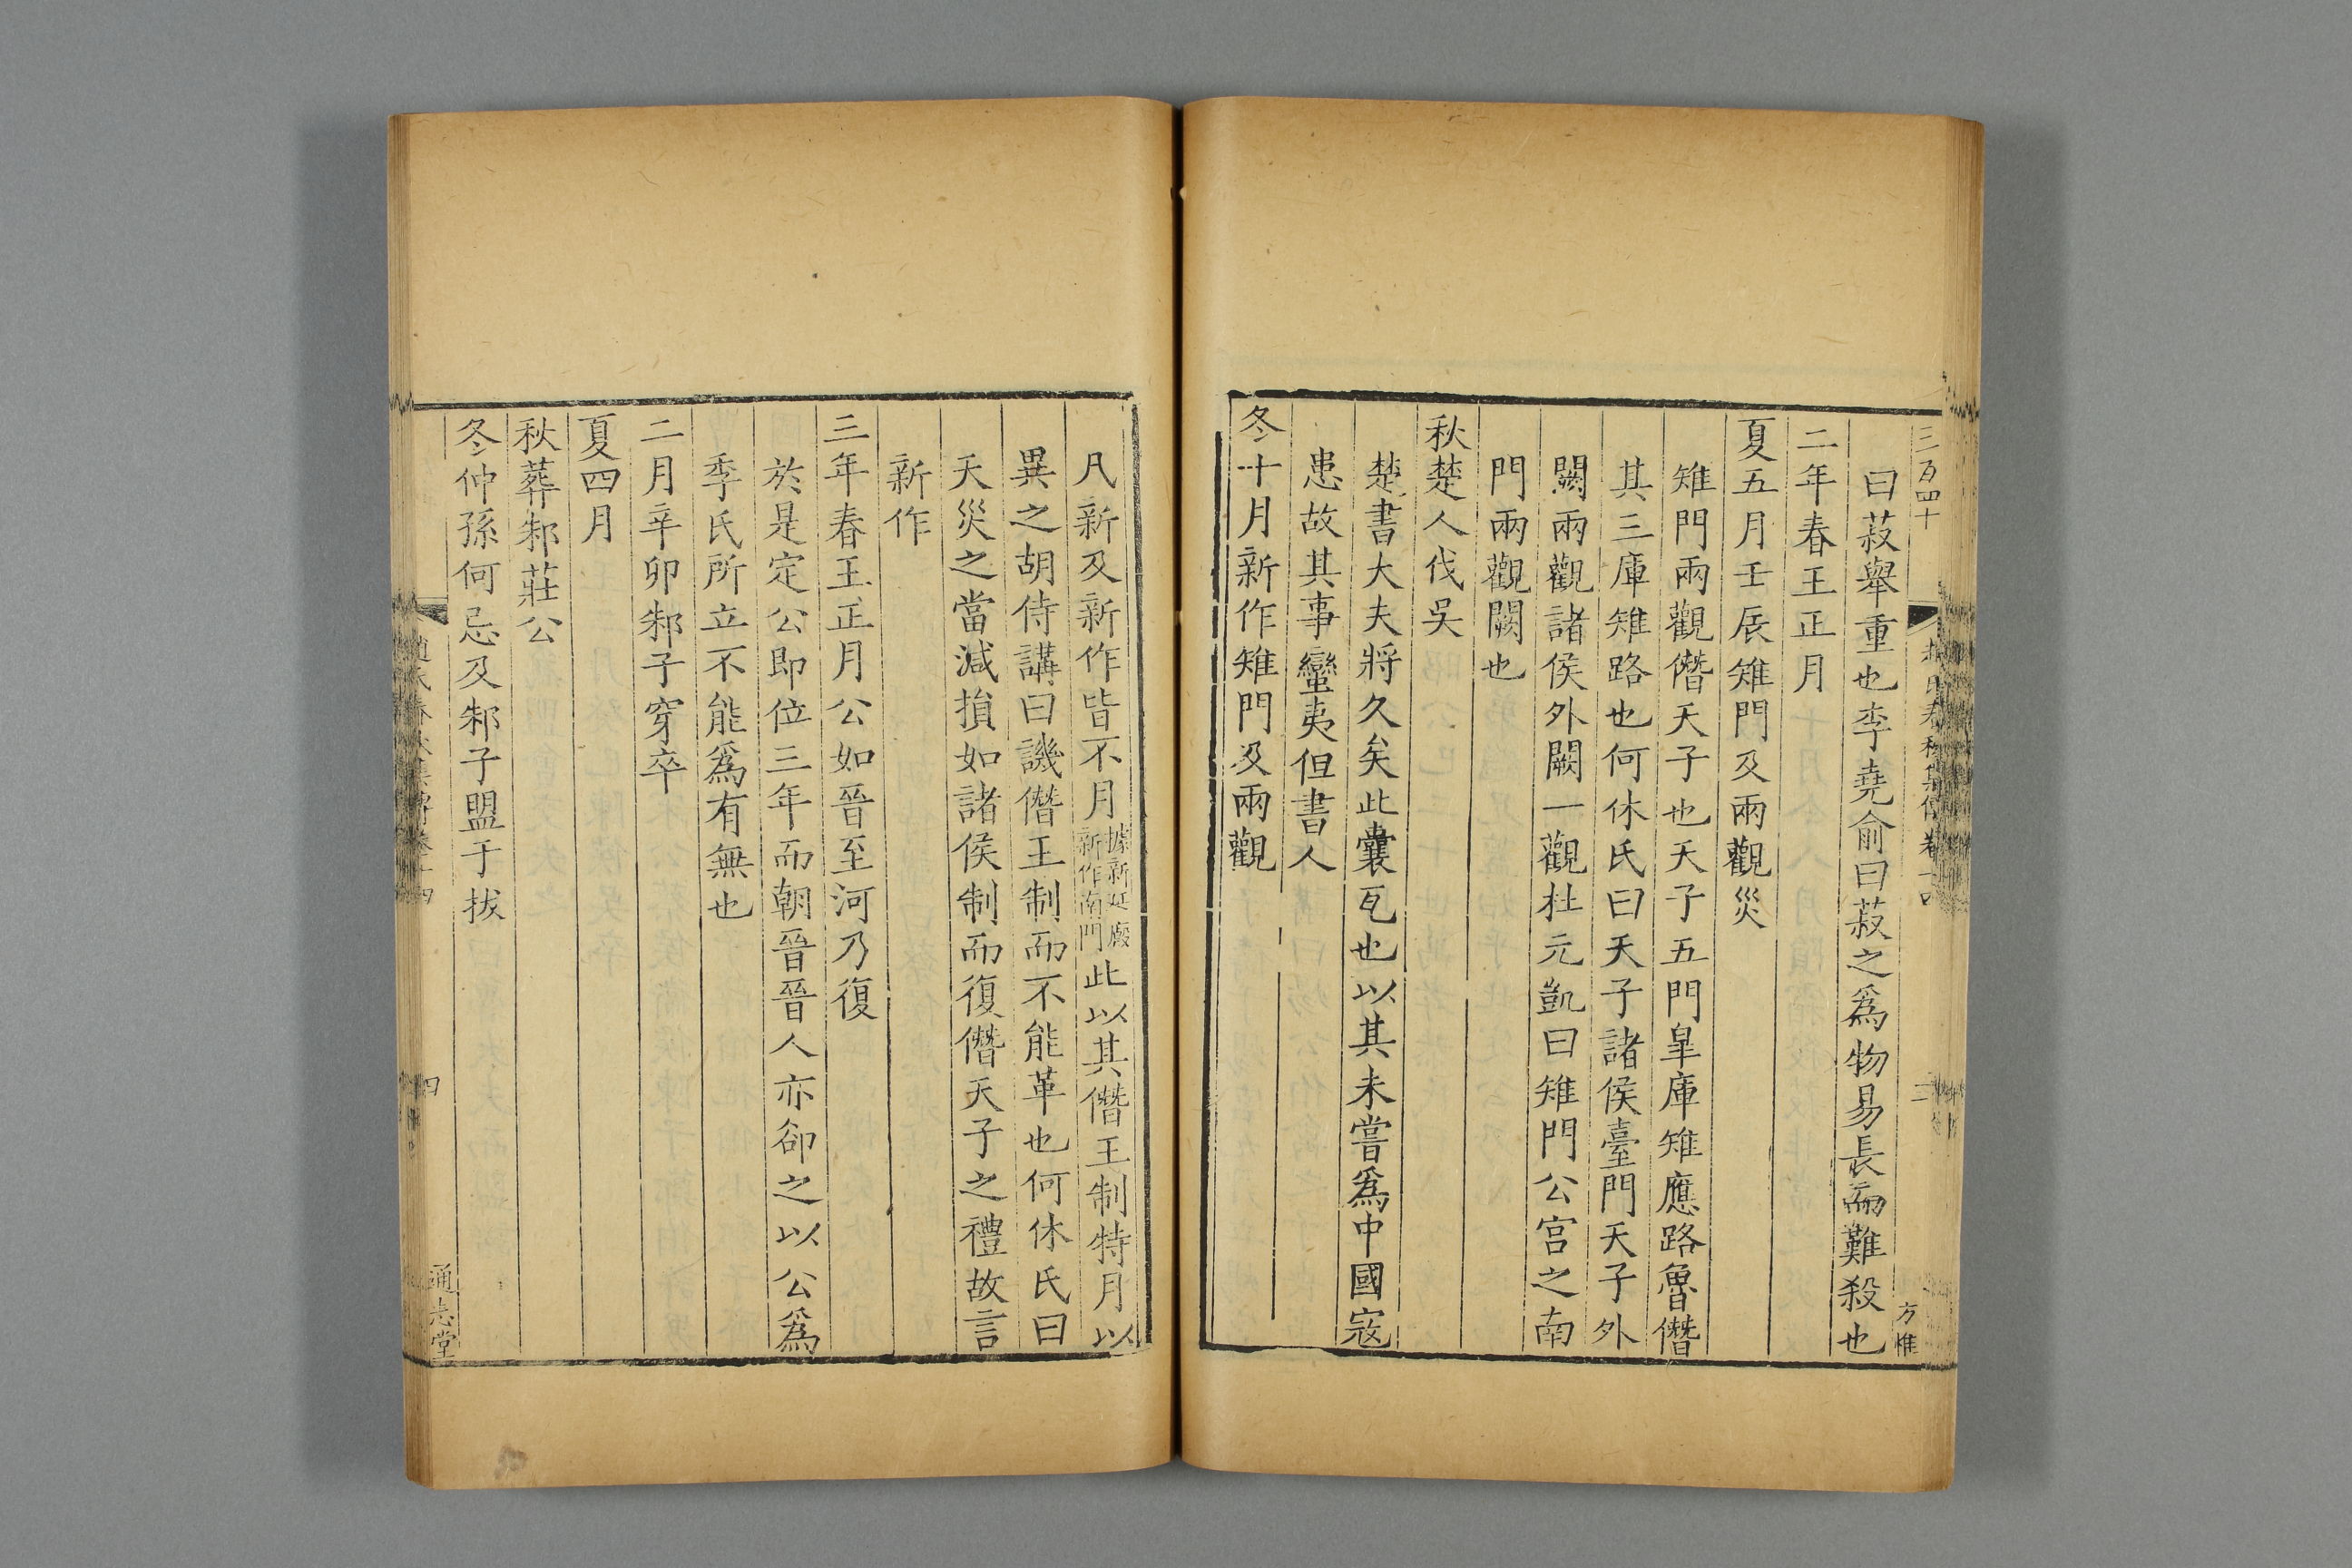 三百四十
春秋集傳卷十四
三
方惟
曰菽舉重也李堯俞曰菽之爲物易長而難殺也
二年春王正月
夏五月壬辰雉門及兩觀災
雉門兩觀僭天子也天子五門皐庫雉應路魯僭
其三庫雉路也何休氏曰天子諸侯臺門天子外
闕兩觀諸侯外闕一觀杜元凱曰雉門公宮之南
門兩觀闕也
秋楚人伐吳
楚書大夫將久矣此囊瓦也以其未嘗爲中國寇
患故其事蠻夷但書人
冬十月新作雉門及兩觀
凡新及新作皆不月據新延廄新作南門此以其僭王制特月以
異之胡侍講曰譏僭王制而不能革也何休氏曰
天災之當減損如諸侯制而復僭天子之禮故言
新作
三年春王正月公如晉至河乃復
於是定公即位三年而朝晉晉人亦卻之以公爲
季氏所立不能爲有無也
二月辛卯邾子穿卒
夏四月
秋葬邾莊公
冬仲孫何忌及邾子盟于拔
四
通志堂